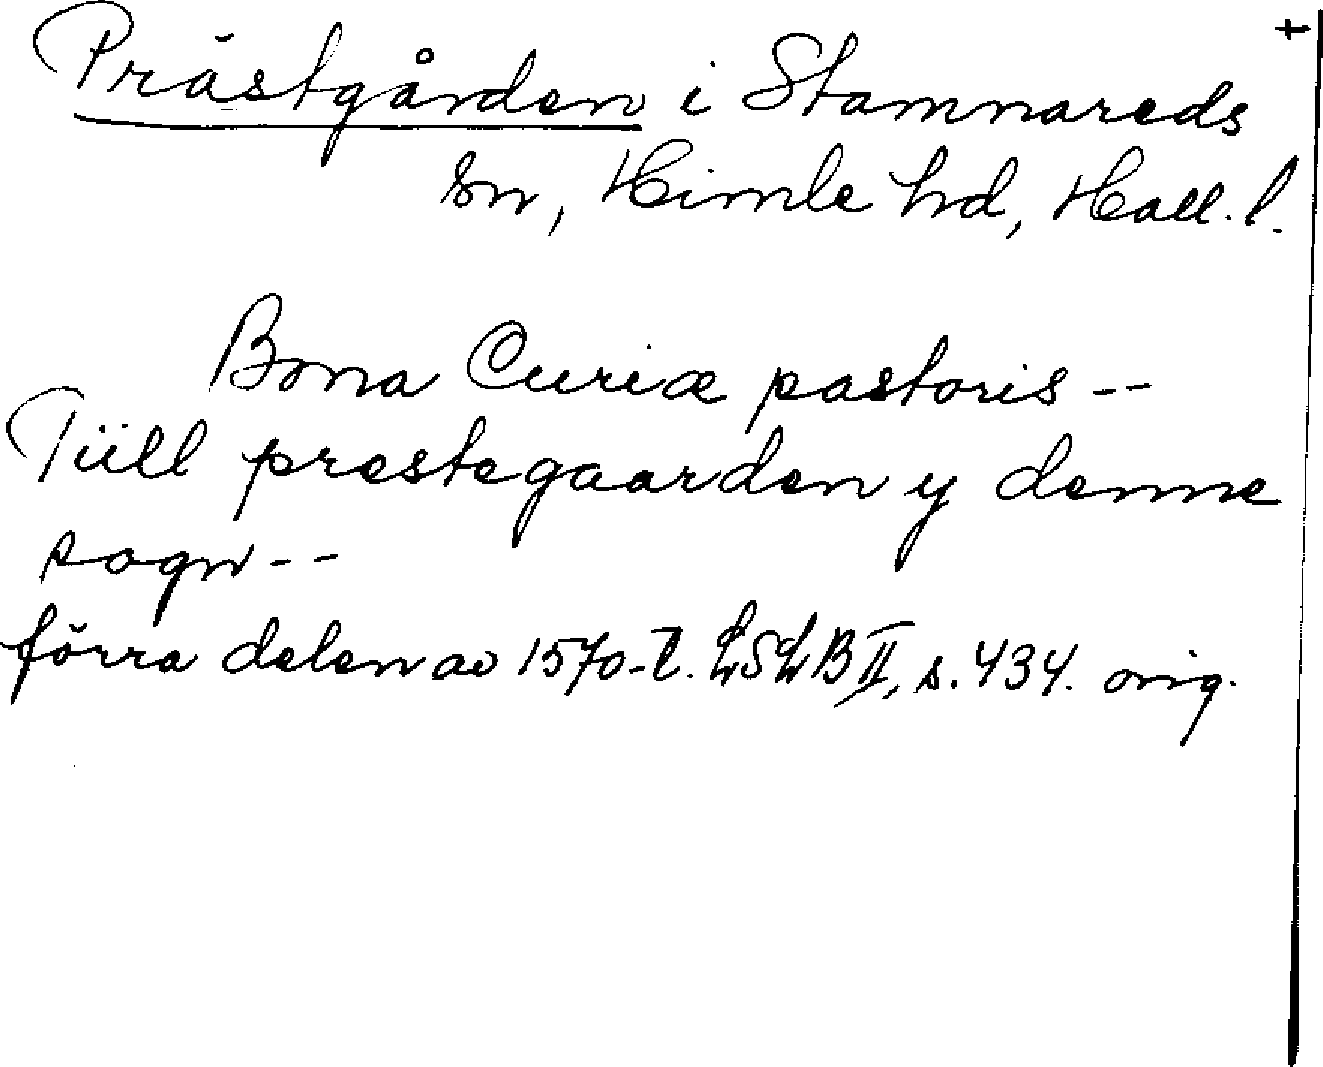 Prästgården i Stamnareds
sn, Himle hd, Hall. l.
Bona Curiæ pastoris --
Tüll prestegaarden y denne
sogn --
förra delen av 1570-t. LSLB II, s. 434. orig.